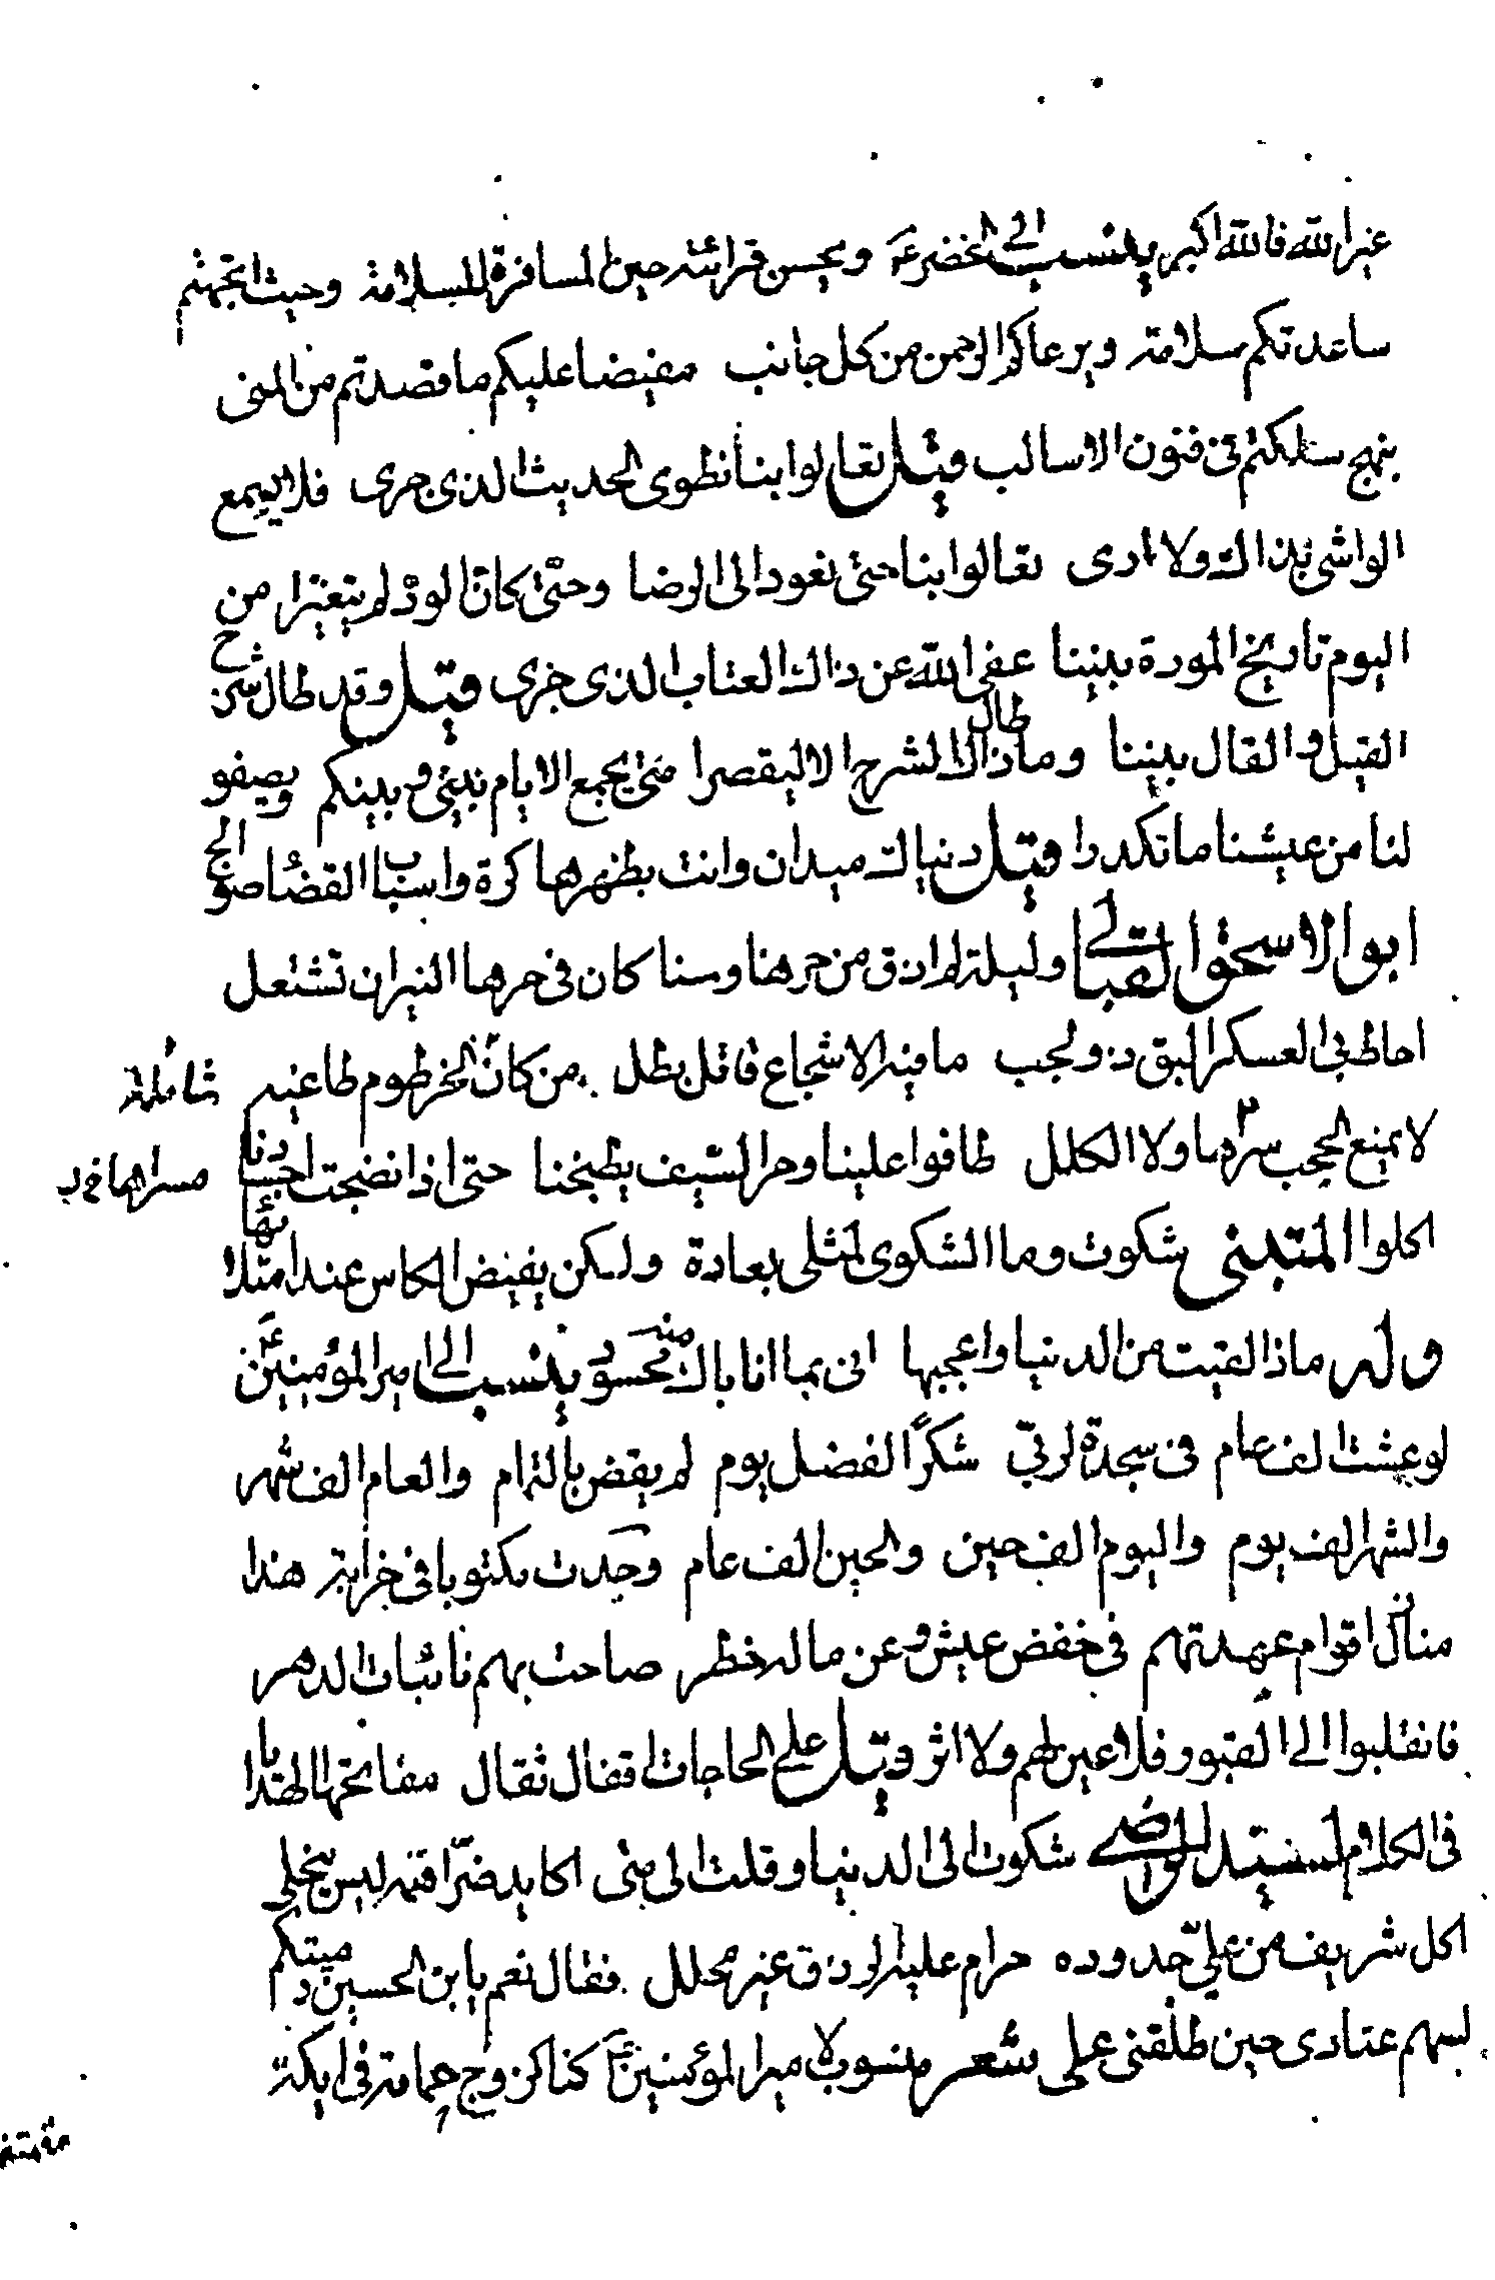 غير الله فالله اكبر ينسب الى الخضر ع ويحسن قرائته حين المسافرة للسلامة وحيث اتجهتم
ساعدتكم سلامة ويرعاكم الرحمن من كل جانب مفيضا عليكم ما قصدتم من المنى
بنهج سلكتم فى فنون الاسالب قيل تعالوا بنا نطوى الحديث الذى جرى فلا يسمع
الواشى بذاك ولا ادرى تعالوا بنا حتى نعود الى الرضا وحتى كان الود لم يتغيرا من
اليوم تاريخ المودة بيننا عفى الله عن ذاك العتاب الذى جرى قيل وقد طال شرح
القيل والقال بيننا وما طال ذاك الشرح الا ليقصرا متى يجمع الايام بينى وبينكم ويصفو
لنا من عيشنا ما تكدرا قيل دنياك ميدان وانت بظهرها كرة واسباب القضا صوالج
ابو الاسحق القبالى وليلة لم اذق من حرها وسنا كان فى حرها النيران تشتعل
احاط بى العسكر البق ذو لجب ما فيه الا شجاع فاتل بطل من كان الخرطوم طاعنه
لا يمنع الحجب سراها ولا الكلل طافوا علينا وحر الشيف يطبخنا حتى اذا نضجت اجسادنا
اكلوا المتنبى شكوت وما الشكوى لمثلى بعادة ولكن يفيض الكاس عند امتلائها
وله ماذا لقيت من الدنيا واعجبها انى بما انا باك منه محسود ينسب الى امير المؤمنين ع
لو عشت الف عام فى سجدة لربى شكرا لفضل يوم لم يقض بالتمام والعام الف شهر
والشهر الف يوم واليوم الف حين والحين الف عام وجدت مكتوبا فى خرابة هذا
منازل اقوام عهدتهم فى خفض عيش وعن ماله خطر صاحت بهم نائبات الدهر
فانقلبوا الى القبور فلا عين لهم ولا اثر وقيل على الحاجات اقفال ثقال مفاتحها الهدايا
فى الكلام لسيد الرضى شكوت الى الدنيا وقلت الى متى اكابد ضرا فته ليس يخلى
اكل شريف من على جدوده حرام عليه الرزق غير محلل فقال نعم يا ابن الحسين رميتكم
لسهم عنادى حين طلقنى على شعر منسوب لامير المؤمنين ع كنا كزوج حمامة فى ايكة